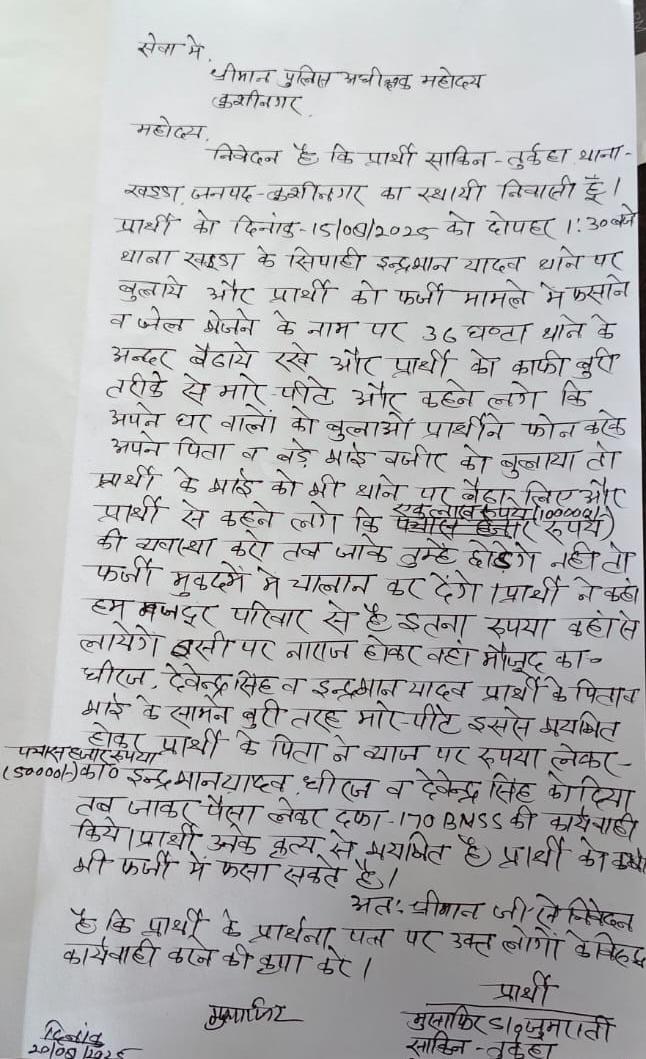 सेवा में,
श्रीमान पुलिस अधीक्षक महोदय
कुशीनगर,
महोदय,
निवेदन है कि प्रार्थी साकिन-तुर्कहा थाना-
खड्डा, जनपद-कुशीनगर का स्थायी निवासी हूँ।
प्रार्थी को दिनांक-15/08/2025 को दोपहर 1:30 बजे
थाना खड्डा के सिपाही इन्द्रभान यादव थाने पर
बुलाये और प्रार्थी को फर्जी मामले में फसाने
व जेल भेजने के नाम पर 36 घण्टा थाने के
अन्दर बैठाये रखे और प्रार्थी को काफी बुरी
तरीके से मारे-पीटे और कहने लगे कि
अपने घर वालों को बुलाओ प्रार्थी ने फोन करके
अपने पिता व बड़े भाई वजीर को बुलाया तो
प्रार्थी के भाई को भी थाने पर बैठा लिए और
एक लाख रुपया (100000/-)
प्रार्थी से कहने लगे कि पचास हजार रूपये)
की व्यवस्था करो तब जाके तुम्हे छोडेगे नही तो
फर्जी मुकदमें में चालान कर देंगे। प्रार्थी ने कहा
हम मजदूर परिवार से है इतना रूपया कहां से
लायेगे इसी पर नाराज होकर वहां मौजूद का०
धीरज, देवेन्द्र सिंह व इन्द्रभान यादव प्रार्थी के पिता व
भाई के सामने बुरी तरह मारे-पीटे इससे भयभित
होकर प्रार्थी के पिता ने ब्याज पर रूपया लेकर-
पचास हजार रूपया
(50000/-) का० इन्द्रभान यादव, धीरज व देवेन्द्र सिंह को दिया
तब जाकर पैसा लेकर दफा-170 BNSS की कार्यवाही
किये। प्रार्थी उनके कृत्य से भयभित है) प्रार्थी को कभी
भी फर्जी में फसा सकते है।
अतः श्रीमान जी से निवेदन
है कि प्रार्थी के प्रार्थना पत्र पर उक्त लोगों के विरूद्ध
कार्यवाही करने की कृपा करे।
प्रार्थी
मुसाफिर
मुसाफिर S/o जुमराती
साकिन-तुर्कहा
दिनांक
20/08/2025